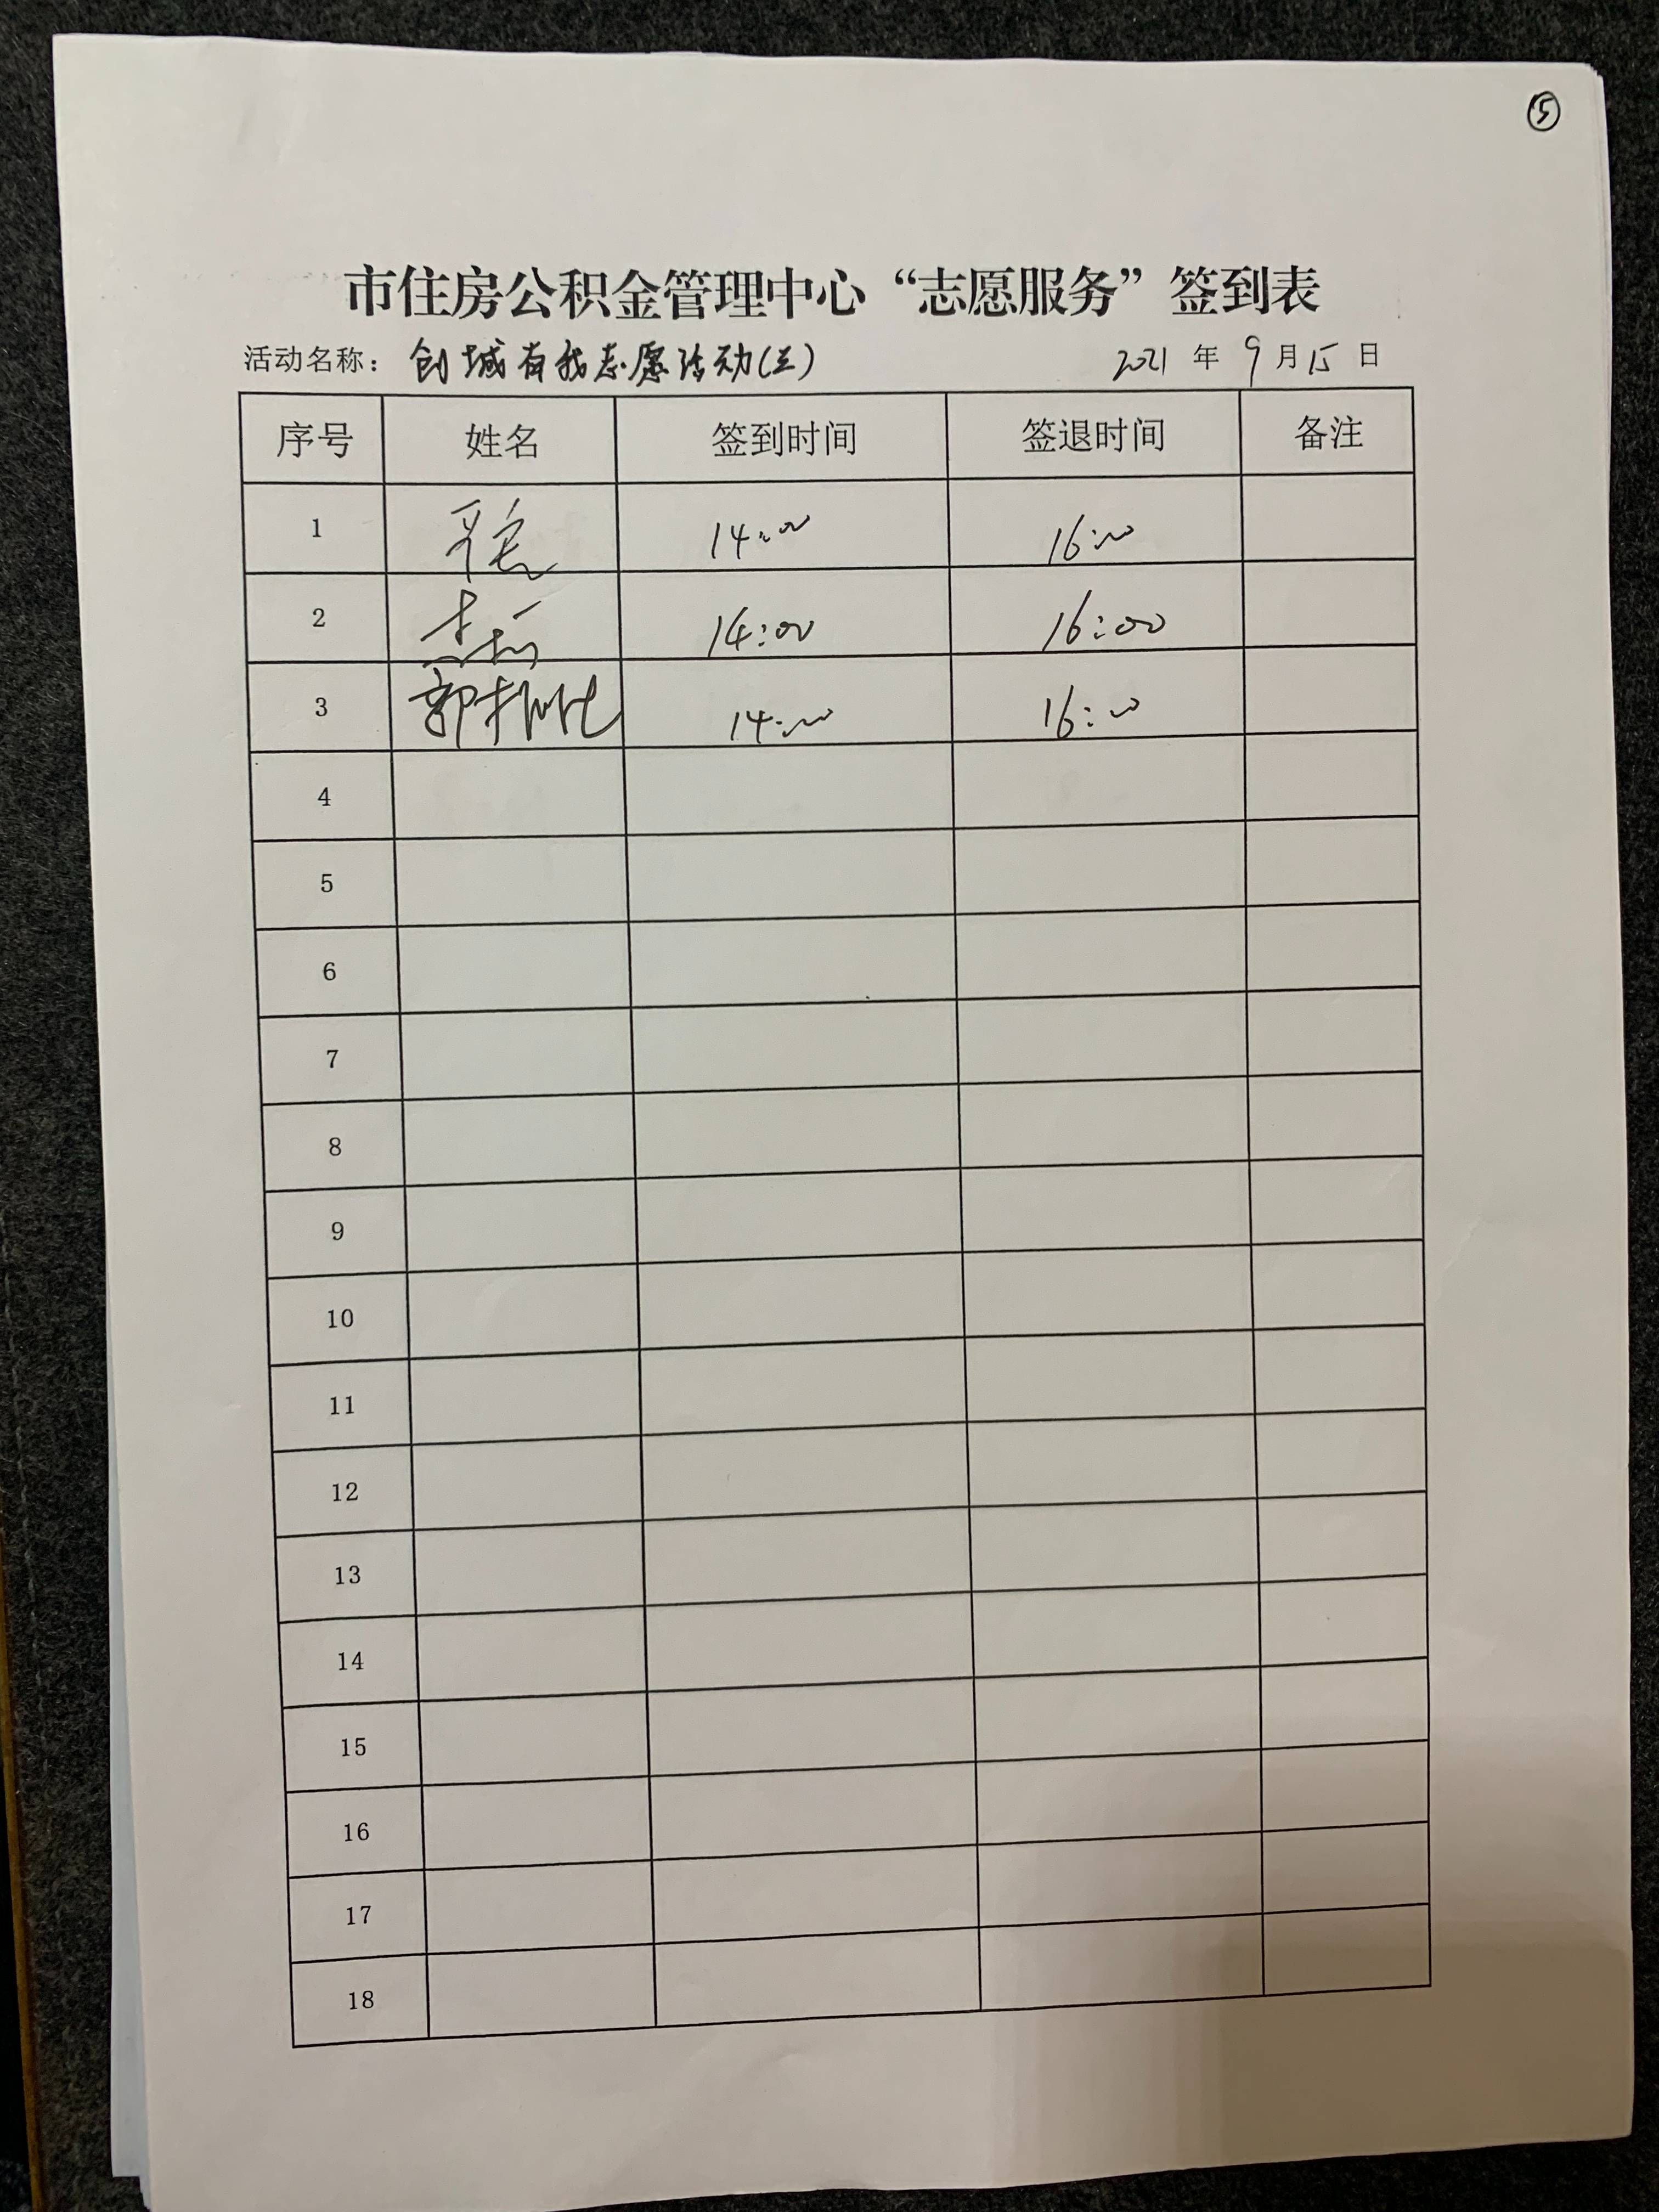 ⑤
市住房公积金管理中心“志愿服务”签到表
活动名称：创城有我志愿活动(三) 2021 年 9 月 15 日
序号 姓名 签到时间 签退时间 备注
1 14:00 16:00
2 14:00 16:00
3 郭 14:00 16:00
4
5
6
7
8
9
10
11
12
13
14
15
16
17
18